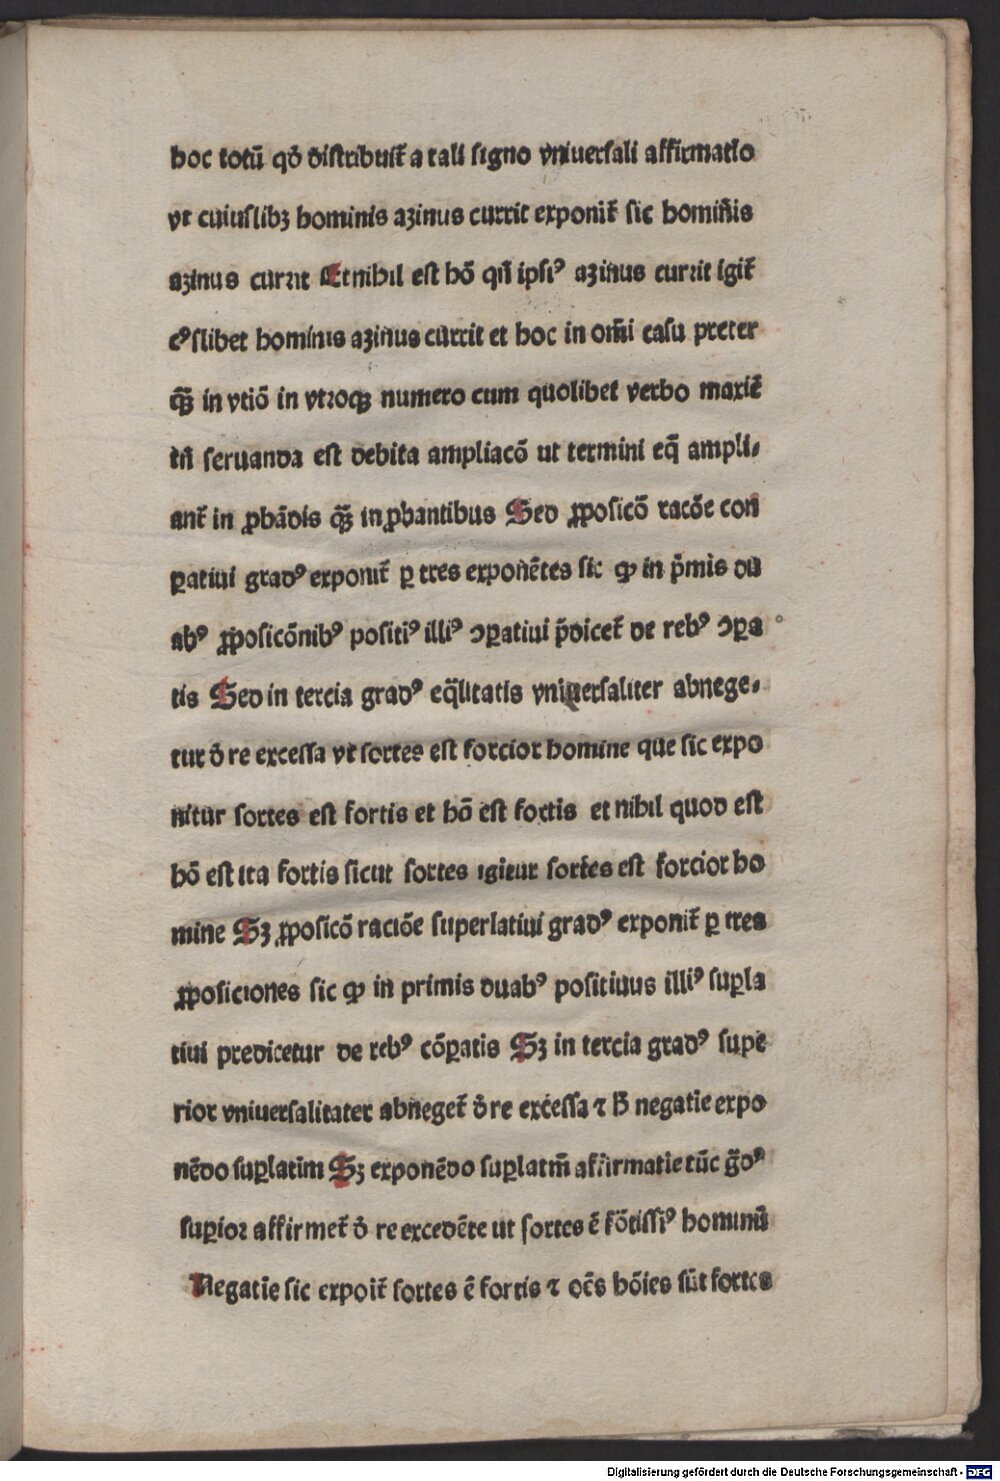 hoc totū qđ distribuit̄ a tali signo vniuersali affirmatīo
vt cuiuslibꝫ hominis azinus currit exponit̄ sic homin̄is
azinus currit Et nihil est hō qn̄ ipsiꝰ azinus currit igit̄
cꝰslibet hominis azinus currit et hoc in om̄i casu preter
qꝫ̄ in vtiō in vtroqꝫ numero cum quolibet verbo maxiē
tn̄ seruanda est debita ampliacō ut termini eq̄ ampli⸗
ant̄ in ꝓbādis qꝫ̄ in ꝓbantibus Sed ꝓposicō racōe con
ꝑatiui gradꝰ exponit̄ ꝑ tres exponētes sic ꝙ in p̄mis du
abꝰ ꝓposicōnibꝰ positiꝰ illiꝰ ↄꝑatiui p̄dicet̄ de rebꝰ ↄꝑa
tis Sed in tercia gradꝰ eq̄litatis vniuersaliter abnege⸗
tur đ re excessa vt sortes est forcior homine que sic expo
nitur sortes est fortis et hō est fortis et nihil quod est
hō est ita fortis sicut sortes igitur sortes est forcior ho
mine Sꝫ ꝓposicō raciōe superlatiui gradꝰ exponit̄ ꝑ tres
ꝓposiciones sic ꝙ in primis duabꝰ positiuus illiꝰ suꝑla
tiui predicetur de rebꝰ cōꝑatis Sꝫ in tercia gradꝰ supe
rior vniuersalitater abneget̄ đ re excessa ⁊ h̄ negatie expo
nēdo suꝑlatīm Sꝫ exponēdo suꝑlatm̄ affirmatie tūc ḡdꝰ
suꝑior affirmet̄ đ re excedēte ut sortes ē fōtissiꝰ hominū
Negatīe sic expoit̄ sortes ē fortis ⁊ oēs hōies sūt fortes
Digitalisierung gefördert durch die Deutsche Forschungsgemeinschaft - DFG